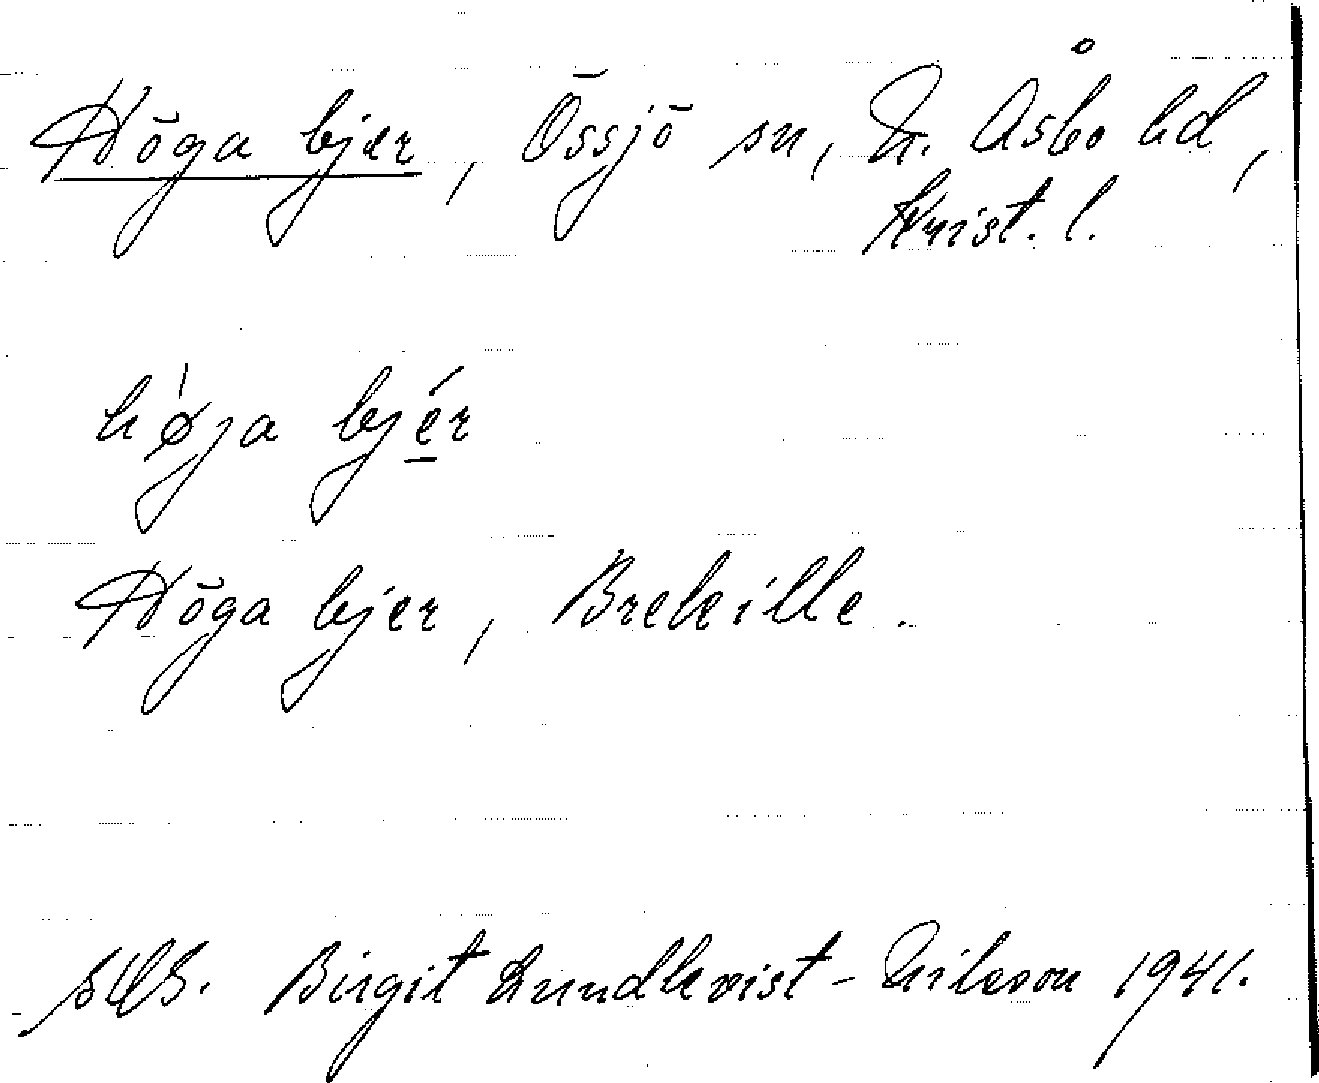 Höga bjer, Össjö sn, N. Åsbo hd,
Krist. l.
høja bjér
Höga bjer, Brehille.
Birgit Lundkvist-Nilsson 1941.